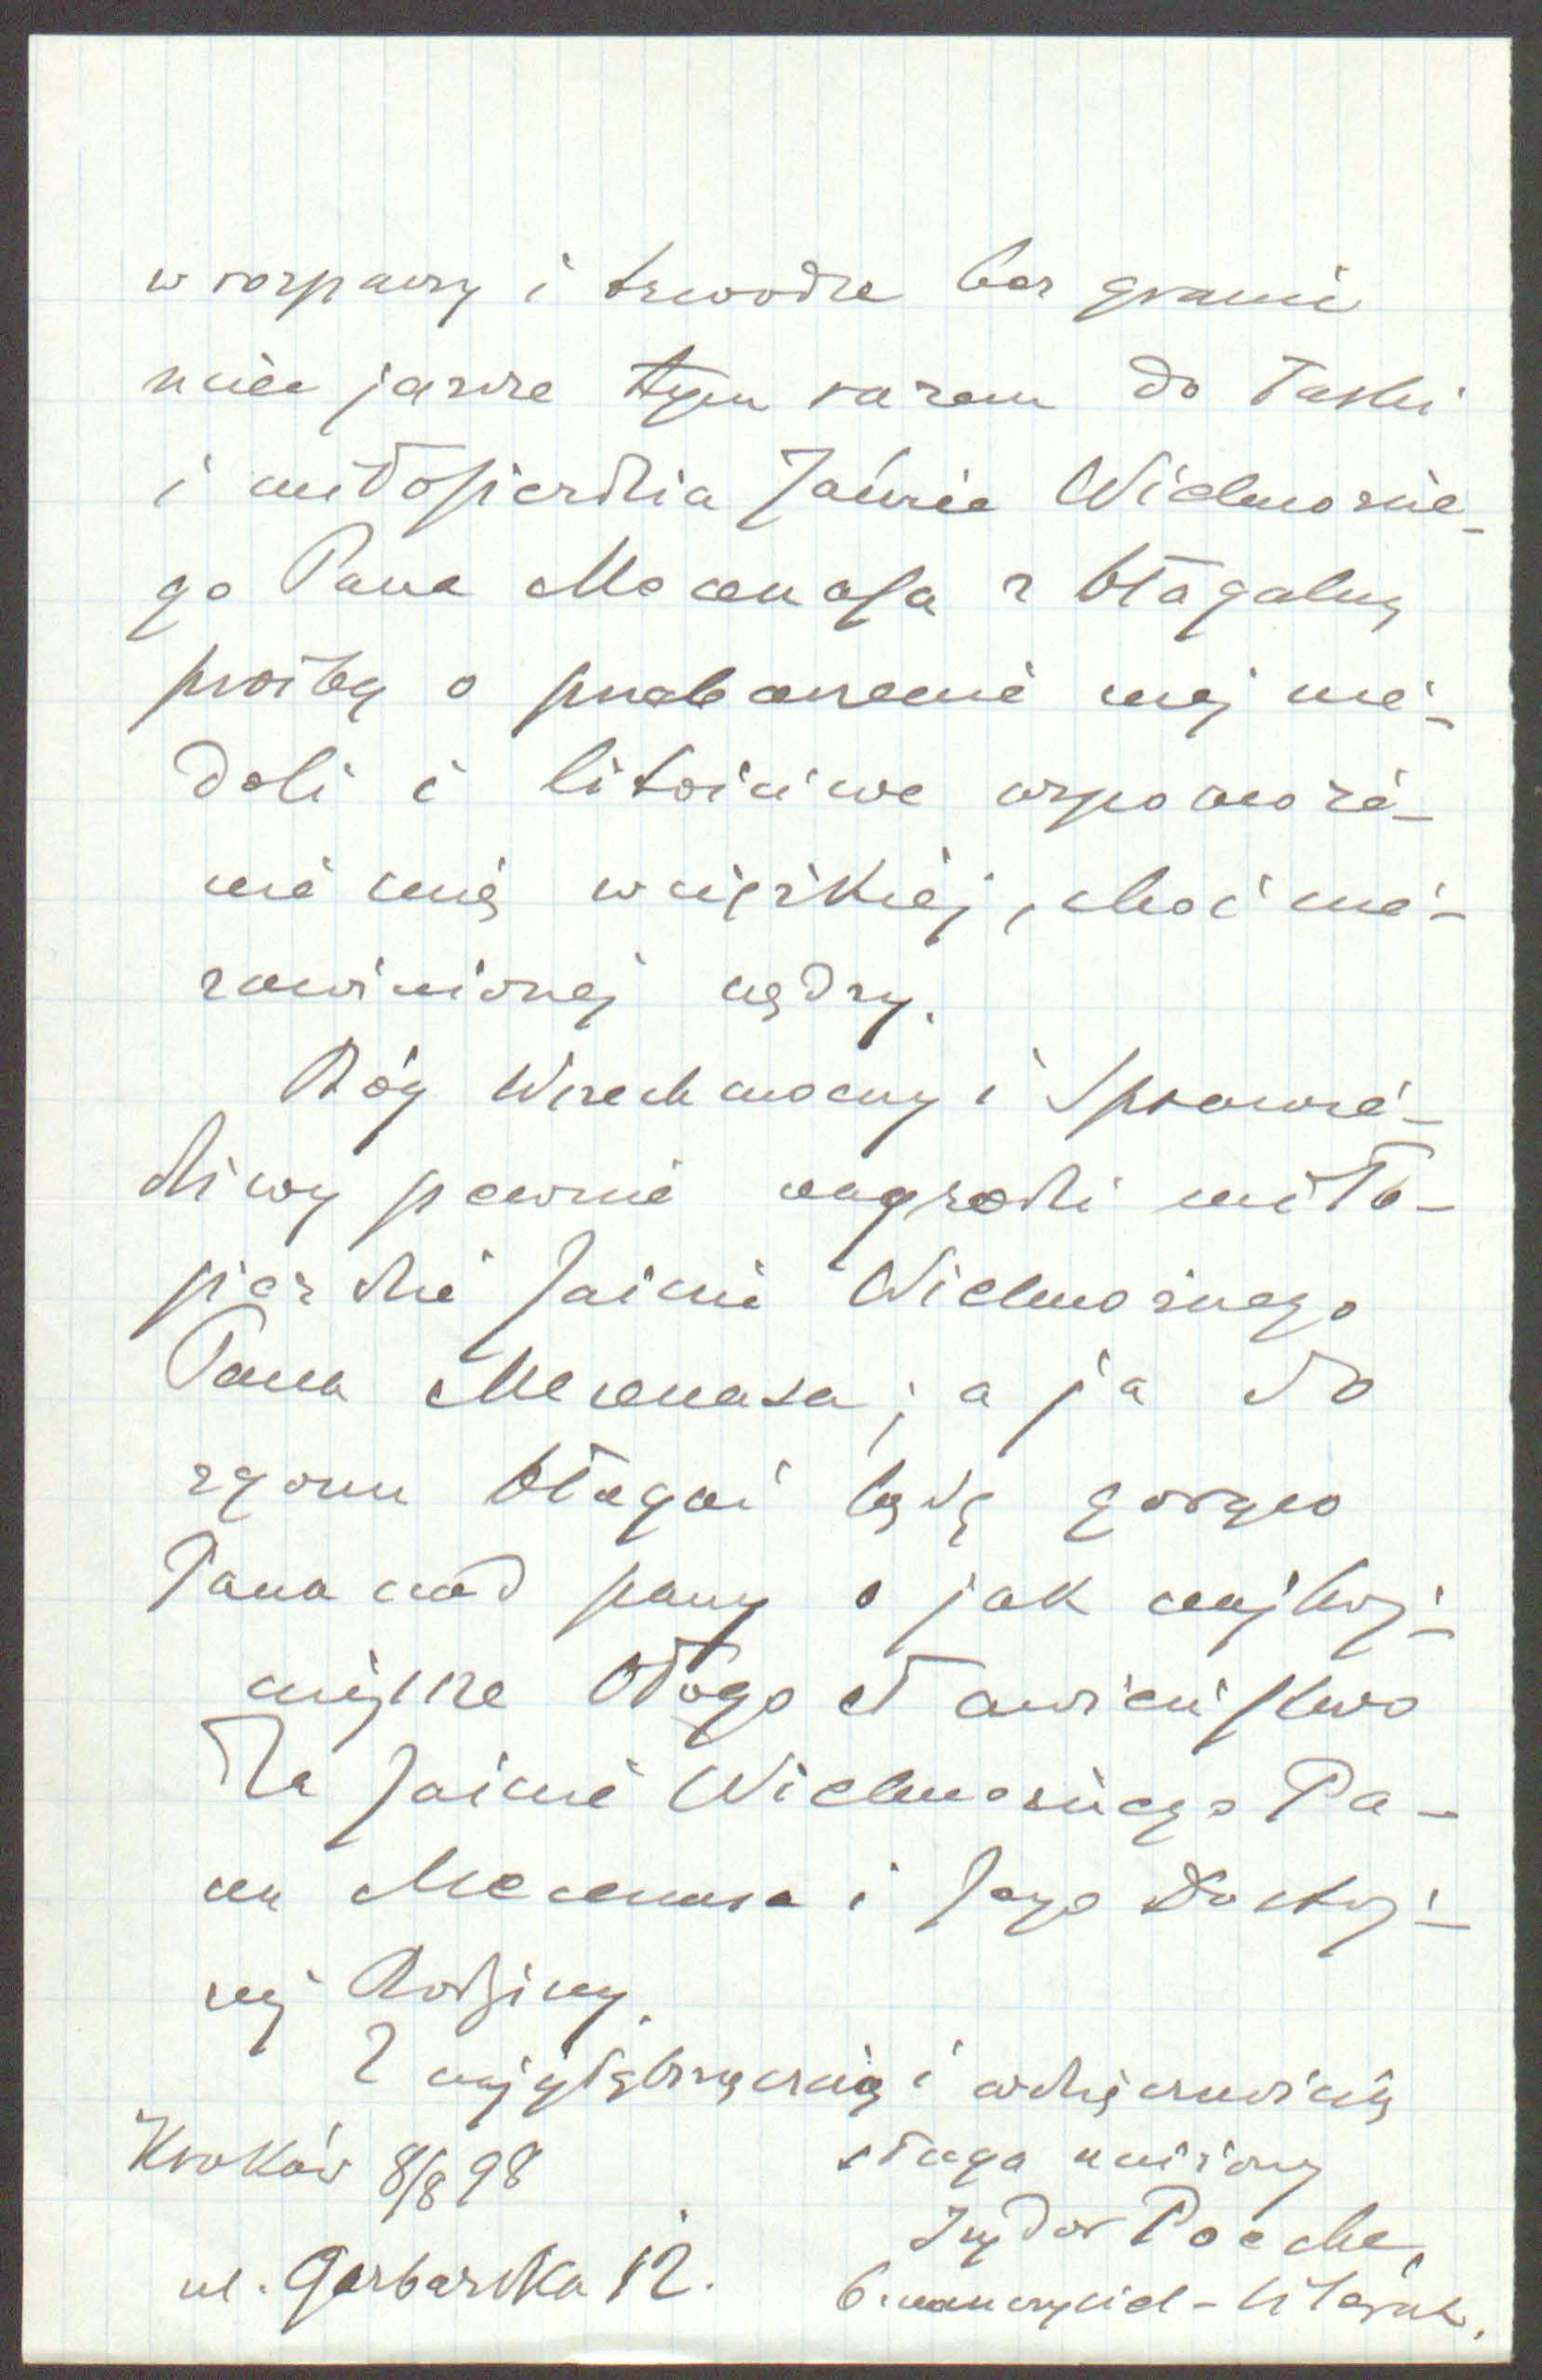 w rozpaczy i trwodze bez grani
uciec jeszcze tym razem do łaski
i miłosierdzia Jaśnie Wielmożne-
go Pana Mecenasa z błagalną
prośbą o przebaczenie mej nie-
doli i litościwe wspomoże-
nie mnie w ciężkiej, choć nie-
zawinionej nędzy.
Bóg Wszechmocny i Sprawie-
dliwy pewnie nagrodzi miło-
sierdzie Jaśnie Wielmożnego
Pana Mecenasa; a ja do
zgonu błagać będę gorąco
Pana nad pany o jak najhoj-
niejsze błogosławieństwo
dla Jaśnie Wielmożnego Pa-
na Mecenasa i Jego Dostoj-
nej Rodziny.
Z najgłębszą czcią i wdzięcznością
Kraków 8/8 98 sługa uniżony
Izydor Poeche,
ul. Garbarska 12. b. nauczyciel-literat.